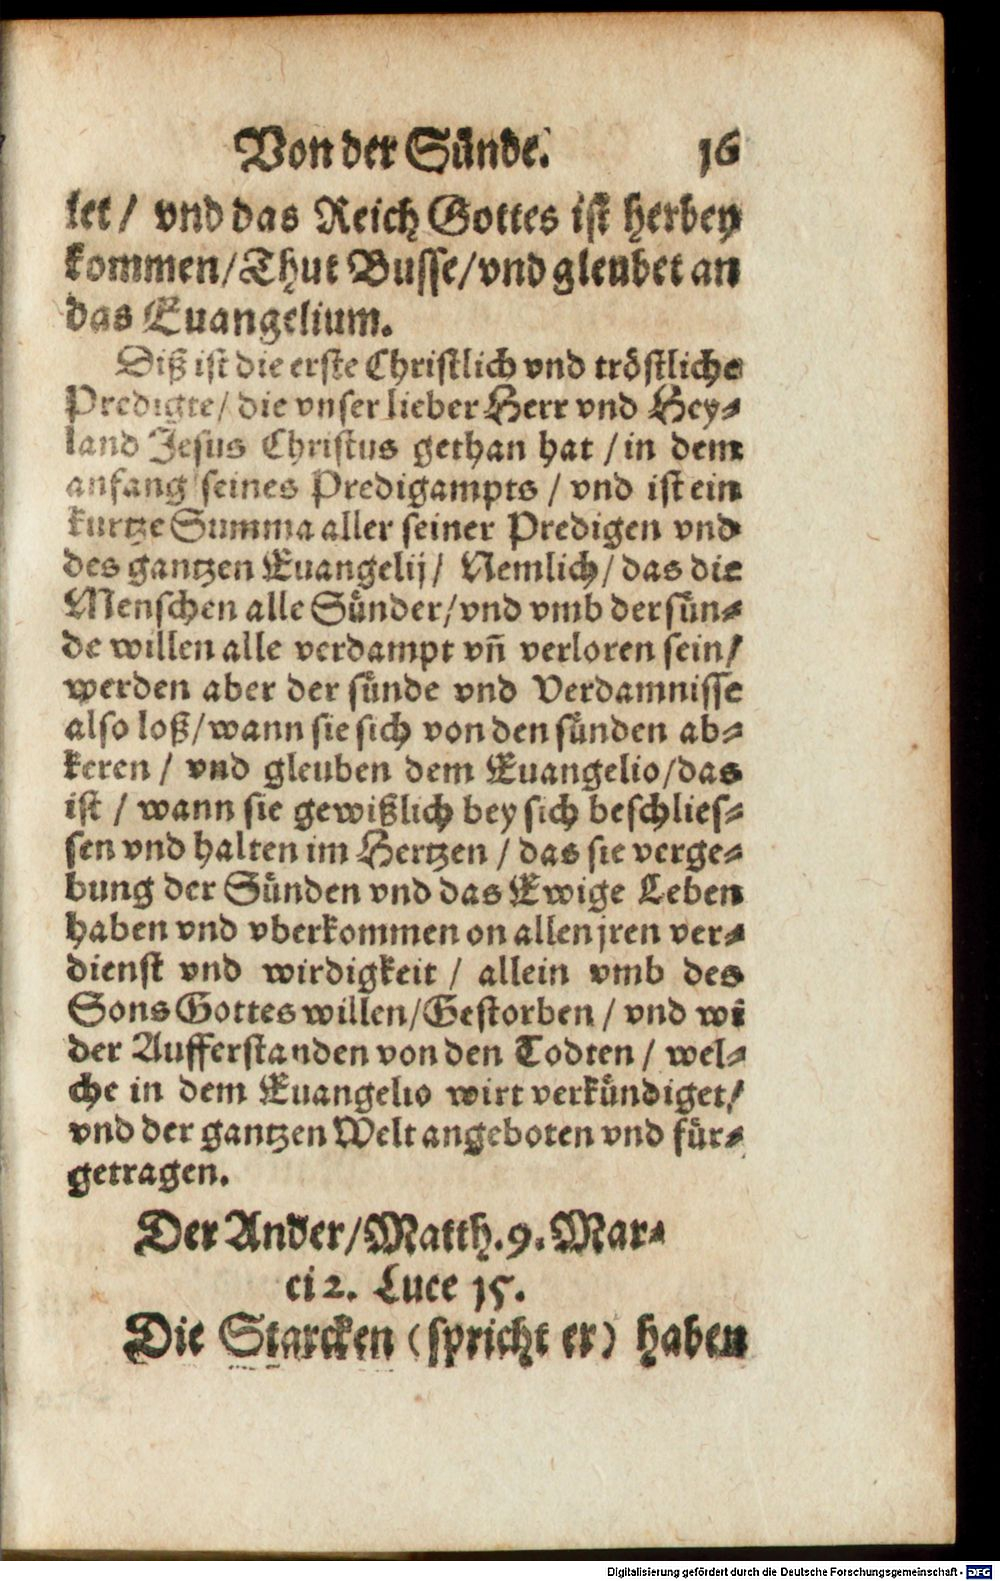 Von der Sünde. 16
let/ vnd das Reich Gottes ist herbey
kommen/Thut Busse/vnd gleubet an
das Euangelium.
Diß ist die erste Christlich vnd tröstliche
Predigte/ die vnser lieber Herr vnd Hey⸗
land Jesus Christus gethan hat /in dem
anfang seines Predigampts / vnd ist ein
kurtze Summa aller seiner Predigen vnd
des gantzen Euangelij/ Nemlich/ das die
Menschen alle Sünder/vnd vmb der sün⸗
de willen alle verdampt vn̄ verloren sein/
werden aber der sünde vnd Verdamnisse
also loß/wann sie sich von den sünden ab⸗
keren / vnd gleuben dem Euangelio/das
ist / wann sie gewißlich bey sich beschlies⸗
sen vnd halten im Hertzen / das sie verge⸗
bung der Sünden vnd das Ewige Leben
haben vnd vberkommen on allen jren ver⸗
dienst vnd wirdigkeit / allein vmb des
Sons Gottes willen/Gestorben / vnd wi
der Aufferstanden von den Todten / wel⸗
che in dem Euangelio wirt verkündiget/
vnd der gantzen Welt angeboten vnd für⸗
getragen.
Der Ander/Matth.9.Mar⸗
ci 2. Luce 15.
Die Starcken (spricht er) haben
Digitalisierung gefördert durch die Deutsche Forschungsgemeinschaft - DFG